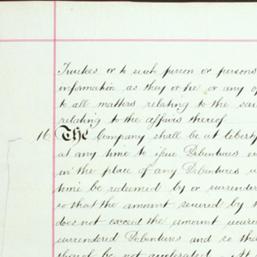 Trustees or to such person or persons
information as they or he or any of
to all matters relating to the said
relating to the affairs thereof
16 The Company shall be at liberty
at any time to issue Debentures
in the place of any Debentures
time be returned by or surrendered
so that the amount secured by
does not exceed the amount
surrendered Debentures and so that
shall be not accelerated At